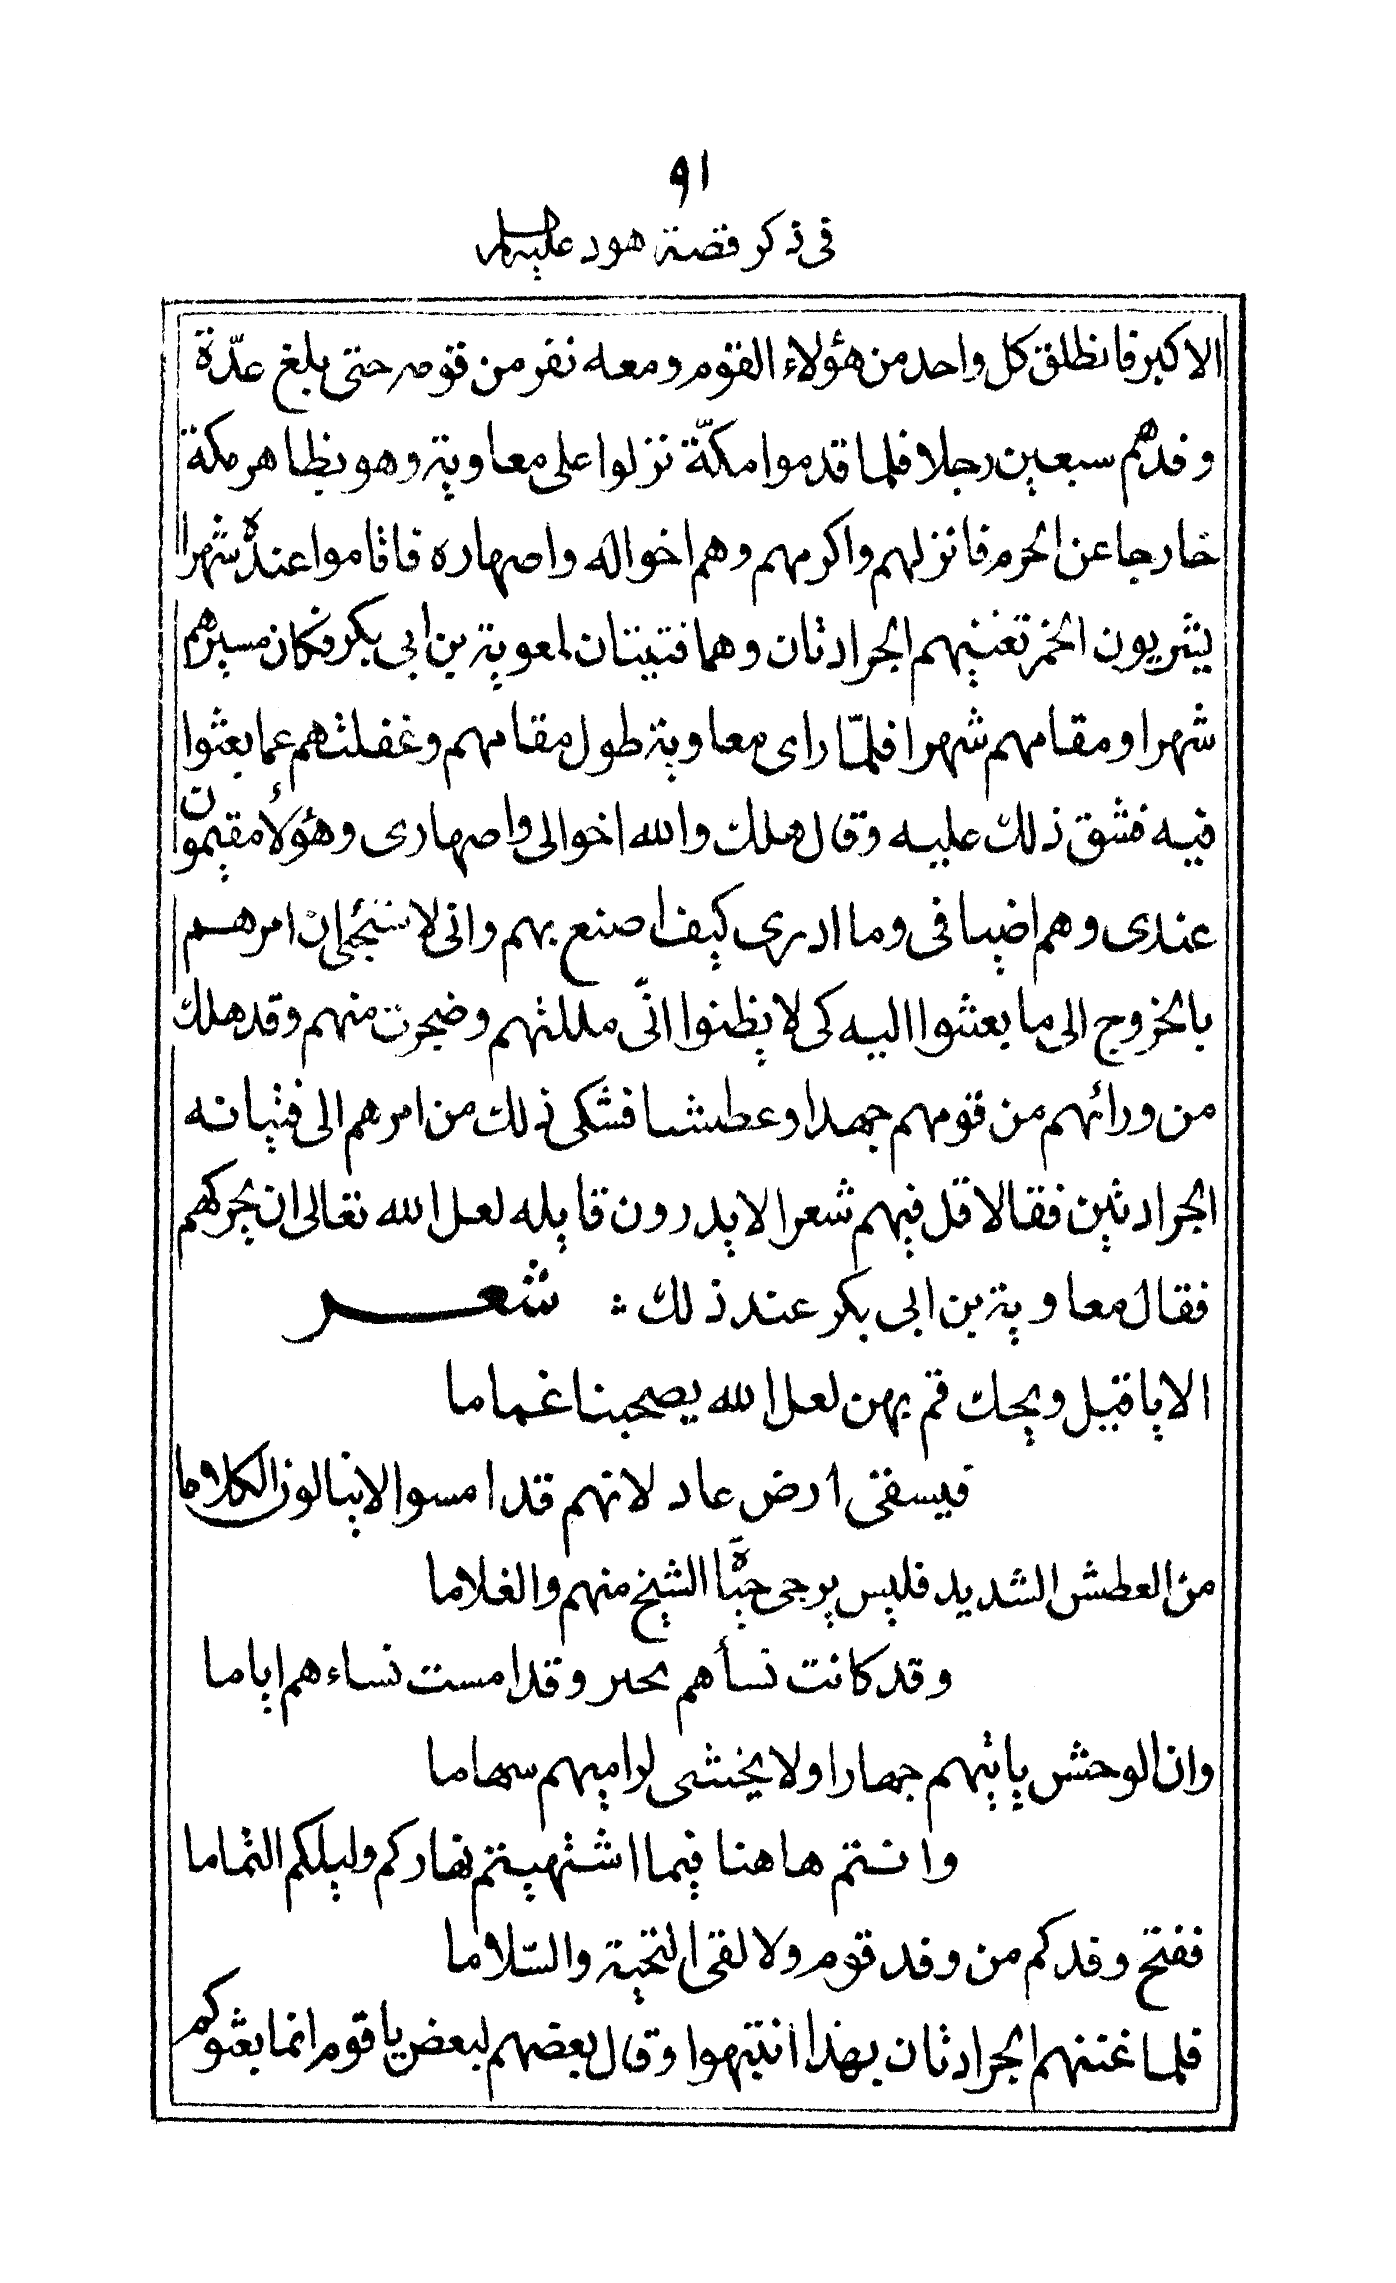 ٩١
فى ذكر قصة هود عليه السلام
الاكبر فانطلق كل واحد من هؤلاء القوم ومعه نفر من قومه حتى بلغ عدّة
وفدهم سبعين رجلا فلما قدموا مكّة نزلوا على معاوية وهو بظاهر مكة
خارجا عن الحرم فانزلهم واكرمهم وهم اخواله واصهاره فاقاموا عنده شهرا
يشربون الخمر تغنيهم الجرادتان وهما فتيتان لمعوية بن ابى بكر فكان مسيرهم
شهرا ومقامهم شهرا فلمّا راى معاوية طول مقامهم وغفلتهم عما بعثوا
فيه فشق ذلك عليه وقال هلك والله اخوالى واصهارى وهؤلاء مقيمون
عندى وهم اضيافى وما ادرى كيف اصنع بهم وانى لا ستجى ان امرهم
بالخروج الى ما بعثوا اليه كى لا يظنوا انّى مللتهم وضجرت منهم وقد هلك
من ورائهم من قومهم جهدا وعطشا فشكى ذلك من امرهم الى فتيانه
الجرادتين فقالا قل فيهم شعرا لا يدرون قايله لعل الله تعالى ان يحركهم
فقال معاوية بن ابى بكر عند ذلك : شعر
الا يا قيل ويحك قم بهن لعل الله يصحبنا غماما
فيسقى ارض عاد لانهم قد امسوا لا ينالون الكلاما
من العطش الشديد فليس يرجى حيّاة الشيخ منهم والغلاما
وقد كانت نسأهم بخير وقد امست نساءهم اياما
وان الوحش ياتيهم جهارا ولا يخشى لراميهم سهاما
وانتم هاهنا فيما اشتهيتم نهاركم وليلكم التماما
ففتح وفدكم من وفد قوم ولا لقى التحية والسّلاما
فلما غنتهم الجرادتان بهذا انتبهوا وقال بعضهم لبعض يا قوم انما بعثوكم